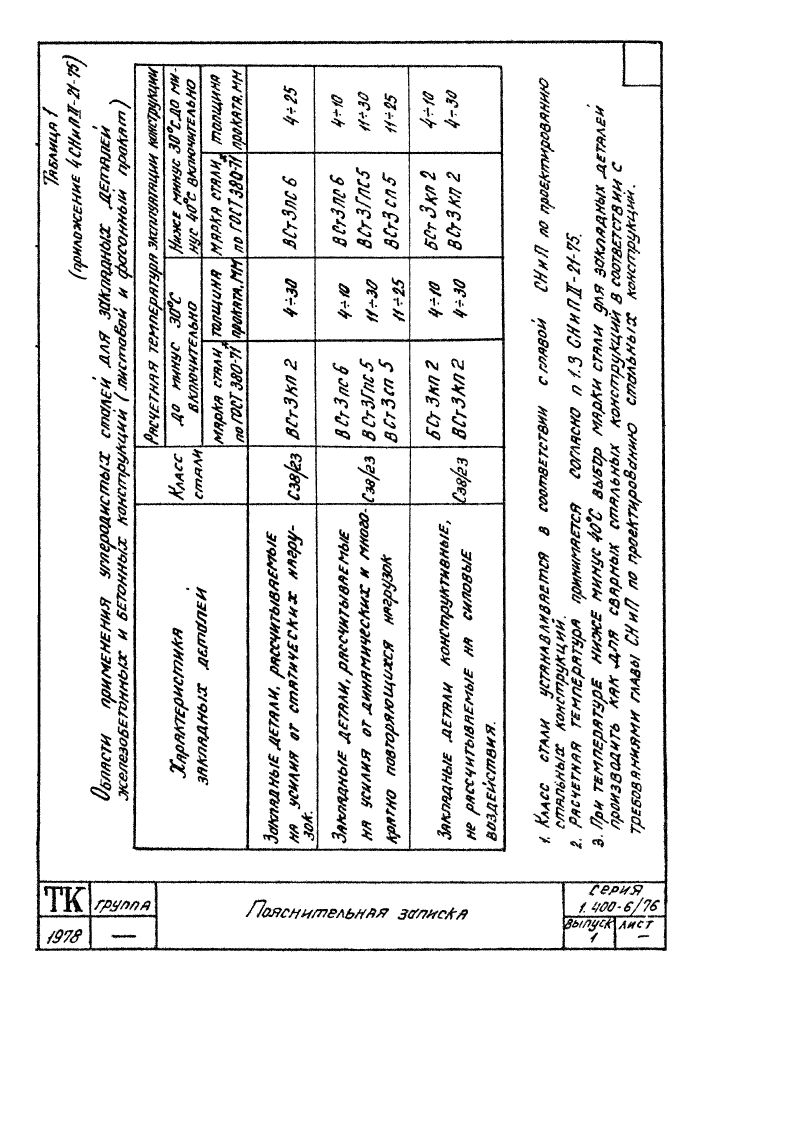 Таблица 1
(приложение 4 СНиП II-21-75)
Области применения углеродистых сталей для закладных деталей
железобетонных и бетонных конструкций (листовой и фасонный прокат)
Характеристика
закладных деталей
Класс
стали
Расчетная температура эксплуатации конструкции
До минус 30°С
включительно
Ниже минус 30°С до ми-
нус 40°С включительно
Марка стали
по ГОСТ 380-71*
Толщина
проката, мм
Марка стали
по ГОСТ 380-71*
Толщина
проката, мм
Закладные детали, рассчитываемые
на усилия от статических нагру-
зок.
С38/23
ВСт3кп2
4÷30
ВСт3пс6
4÷25
Закладные детали, рассчитываемые
на усилия от динамических и много-
кратно повторяющихся нагрузок
С38/23
ВСт3пс6
4÷10
ВСт3пс6
4÷10
ВСт3Гпс5
11÷30
ВСт3Гпс5
11÷30
ВСт3сп5
11÷25
ВСт3сп5
11÷25
Закладные детали конструктивные,
не рассчитываемые на силовые
воздействия.
С38/23
БСт3кп2
4÷10
БСт3кп2
4÷10
ВСт3кп2
4÷30
ВСт3кп2
4÷30
1. Класс стали устанавливается в соответствии с главой СНиП по проектированию
стальных конструкций.
2. Расчетная температура принимается согласно п 1.3 СНиП II-21-75.
3. При температуре ниже минус 40°С выбор марки стали для закладных деталей
производить как для сварных стальных конструкций в соответствии с
требованиями главы СНиП по проектированию стальных конструкций.
ТК
1978
группа
—
Пояснительная записка
серия
1.400-6/76
выпуск
1
лист
—